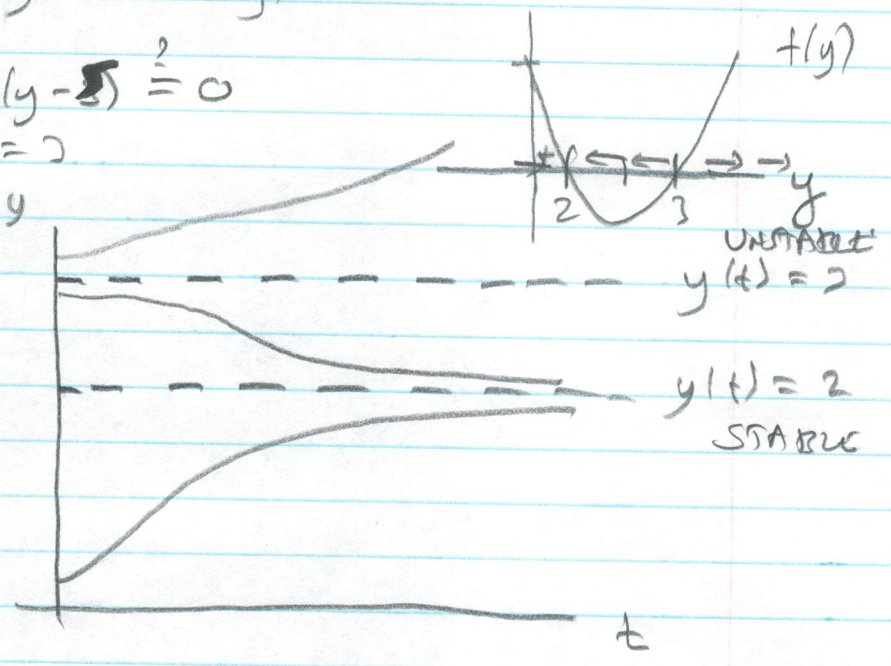 f(y)
(y - 3) ?= 0
y
2 3 y
UNSTABLE
y(t) =
y(t) = 2
STABLE
t